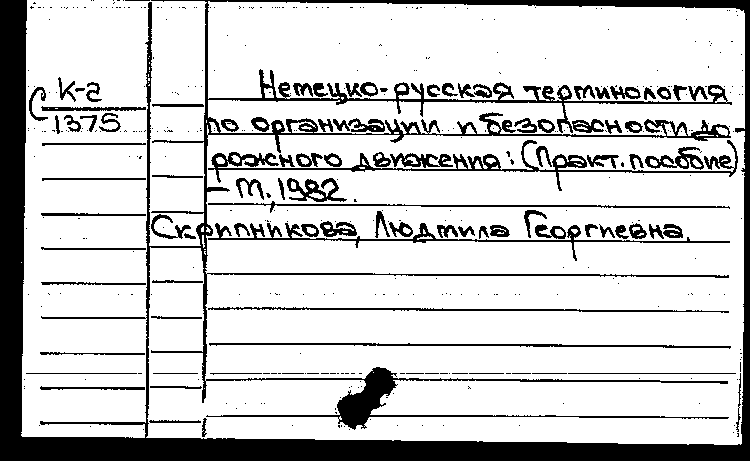 К-г
1375
Немецко-русская терминология
по организации и безопасности до-
рожного движения: (Практ. пособие)
– М., 1982.
Скрипникова, Людмила Георгиевна.